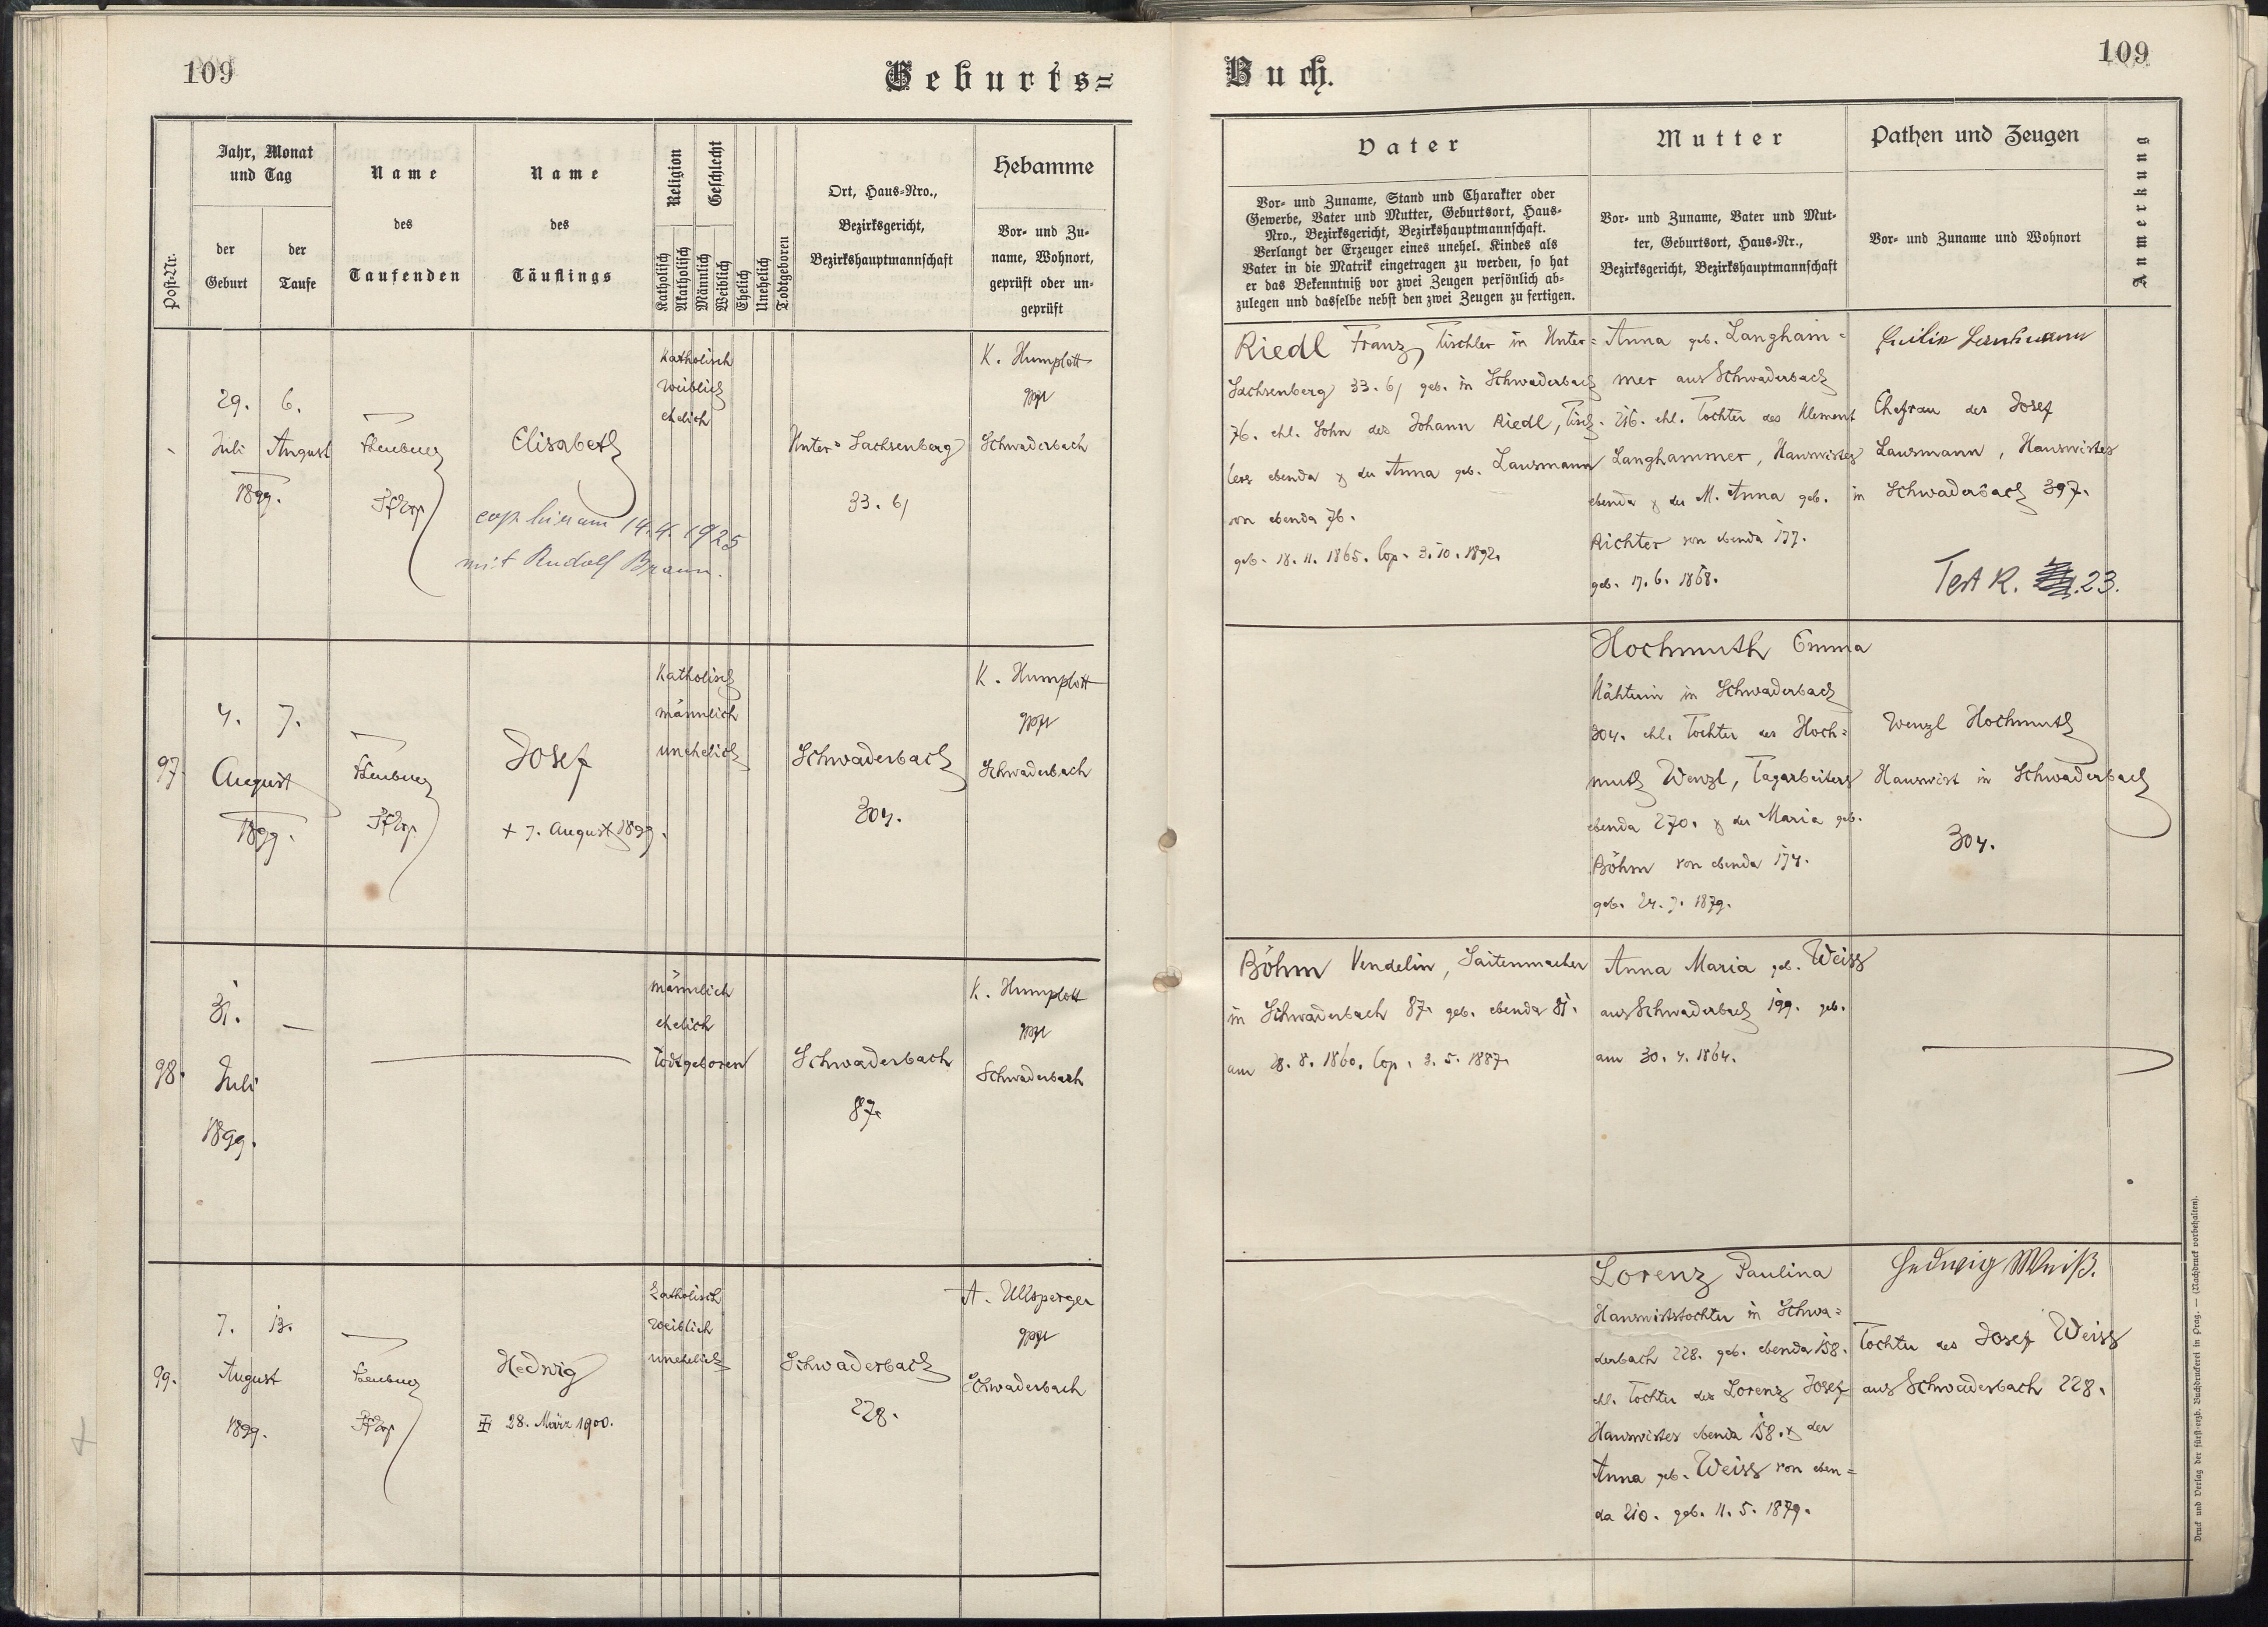 109
Geburts=
Jahr, Monat
und Tag
Name
Name
Religion
Geschlecht
Ort, Haus-Nro.,
Hebamme
Post-Nr.
der
Geburt
der
Taufe
des
Taufenden
des
Täuflings
Katholisch
Akatholisch
Männlich
Weiblich
Ehelich
Unehelich
Todtgeboren
Bezirksgericht,
Bezirkshauptmannschaft
Vor- und Zu-
name, Wohnort,
geprüft oder un-
geprüft
29. 6.
Juli August
1899.
Elisabeth
cop. hier am 14.4.1925
mit Rudolf Braun.
Katholisch
weiblich
ehelich
Unter=Sachsenberg
33.
K. Humplott
gepr
Schwaderbach
97.
4. 7.
August
1899.
Josef
+ 7. August 1899.
Katholisch
männlich
unehelich
Schwaderbach
304.
K. Humplott
gepr
Schwaderbach
98.
31. —
Juli
1899.
männlich
ehelich
Todtgeboren
Schwaderbach
87.
K. Humplott
gepr
Schwaderbach
99.
7. 13.
August
1899.
Hedwig
28. März 1900.
Katholisch
weiblich
unehelich
Schwaderbach
228.
A. Ullsperger
gepr
Schwaderbach
Buch.
109
Vater
Mutter
Pathen und Zeugen
Anmerkung
Vor- und Zuname, Stand und Charakter oder
Gewerbe, Vater und Mutter, Geburtsort, Haus-
Nro., Bezirksgericht, Bezirkshauptmannschaft.
Verlangt der Erzeuger eines unehel. Kindes als
Vater in die Matrik eingetragen zu werden, so hat
er das Bekenntniß vor zwei Zeugen persönlich ab-
zulegen und dasselbe nebst den zwei Zeugen zu fertigen.
Vor- und Zuname, Vater und Mut-
ter, Geburtsort, Haus-Nr.,
Bezirksgericht, Bezirkshauptmannschaft
Vor- und Zuname und Wohnort
Riedl Franz, Tischler in Unter=
Sachsenberg 33. geb. in Schwaderbach
76. ehl. Sohn des Johann Riedl, Tisch-
lers ebenda & der Anna geb. Lausmann
von ebenda 76.
geb. 18. 11. 1865. Cop. 3. 10. 1892.
Anna geb. Langham=
mer aus Schwaderbach
216. ehl. Tochter des Klement
Langhammer, Hauswirtes
ebenda & der M. Anna geb.
Richter von ebenda 177.
geb. 17. 6. 1868.
Ehefrau des Josef
Lausmann, Hauswirtes
in Schwaderbach 397.
Test R. 23.
Hochmuth Emma
Nähterin in Schwaderbach
304. ehl. Tochter des Hoch=
muth Wenzl, Tagarbeiters
ebenda 270. & der Maria geb.
Böhm von ebenda 174.
geb. 24. 7. 1879.
Wenzl Hochmuth
Hauswirt in Schwaderbach
304.
Böhm Vendelin, Saitenmacher
in Schwaderbach 87. geb. ebenda 81.
am 28. 8. 1860. Cop. 3. 5. 1887.
Anna Maria geb. Weiss
aus Schwaderbach 199. geb.
am 30. 4. 1864.
Lorenz Paulina
Hauswirtstochter in Schwa=
derbach 228. geb. ebenda 158.
ehl. Tochter des Lorenz Josef
Hauswirtes ebenda 158. & der
Anna geb. Weiss von eben=
da 210. geb. 11. 5. 1879.
Hedwig Weiß.
Tochter des Josef Weiss
aus Schwaderbach 228.
Druck und Verlag der fürst-erzb. Buchdruckerei in Prag. — (Nachdruck vorbehalten).